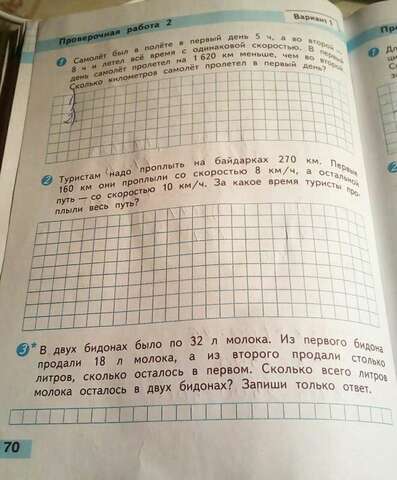 Проверочная работа 2
Вариант 1
1 Самолёт был в полёте в первый день 5 ч, а во второй —
8 ч и летел всё время с одинаковой скоростью. В первый
день самолёт пролетел на 1 620 км меньше, чем во второй.
Сколько километров самолёт пролетел в первый день?
2 Туристам надо проплыть на байдарках 270 км. Первые
160 км они проплыли со скоростью 8 км/ч, а остальной
путь — со скоростью 10 км/ч. За какое время туристы про-
плыли весь путь?
3* В двух бидонах было по 32 л молока. Из первого бидона
продали 18 л молока, а из второго продали столько
литров, сколько осталось в первом. Сколько всего литров
молока осталось в двух бидонах? Запиши только ответ.
70